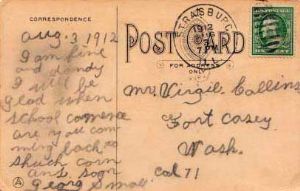 CORRESPONDENCE
Aug. 3 1912
I am fine
and dandy
I will be
glad when
school comence
are you com
ming back to
shuck corn
ans. soon
Georg Small
POST CARD
FOR ADDRESS
ONLY
STRASBURG
1912
Mr. Virgil Collins
Fort Casey
Wash.
Cal 71